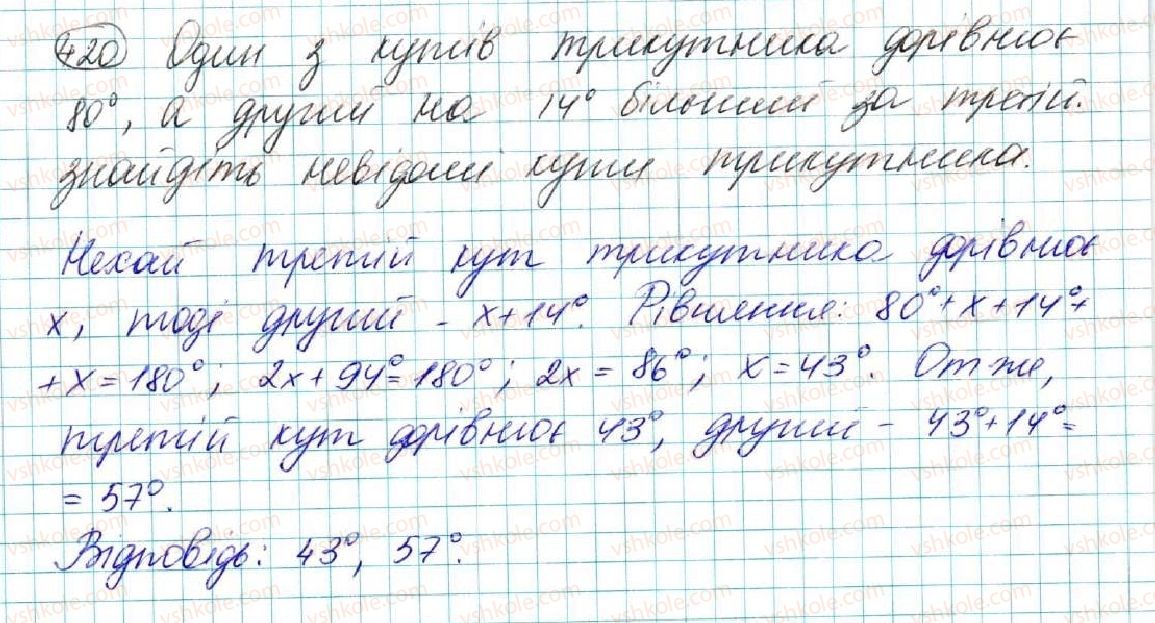 420 Один з кутів трикутника дорівнює
80°, а другий на 14° більший за третій.
знайдіть невідомі кути трикутника.
Нехай третій кут трикутника дорівнює
x, тоді другий - x+14°. Рівняння: 80°+x+14°+
+x=180°; 2x+94°=180°; 2x=86°; x=43°. Отже,
третій кут дорівнює 43°, другий - 43°+14°=
=57°.
Відповідь: 43°, 57°.